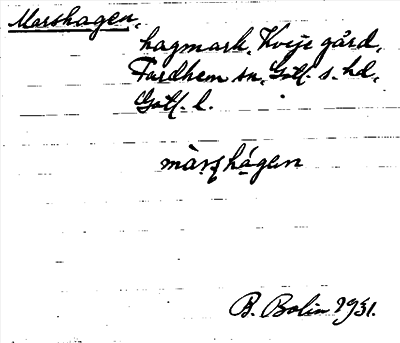 Marshagen,
hagmark, Kvije gård,
Fardhem sn, Gotl. s. hd,
Gotl. l.
màrshágen
B. Bolin 1931.